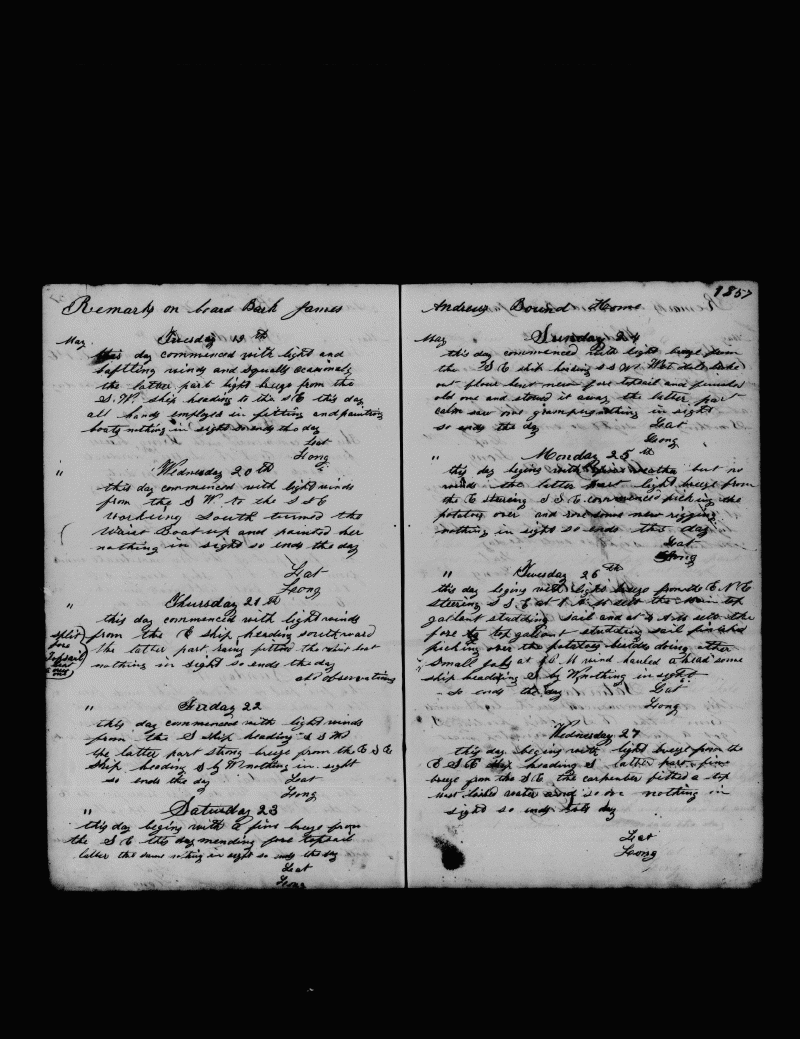 Remarks on board Bark James
May Tuesday 19th
this day commenced with light and
baffling winds and squally ocasionaly
the latter part light breeze from the
S.W. ship heading to the SE this day
all hands employed in fitting and painting
boats nothing in sight so ends the day
Lat
Long
" Wednesday 20th
this day commenced with light winds
from the S W to the S S E
working South turned the
Waist Boat up and painted her
nothing in sight so ends the day
Lat
Long
" Thursday 21th
this day commenced with light winds
from the E ship heading southward
the latter part rainy fitted the waist boat
nothing in sight so ends the day
no observations
split
fore
Topsail
bent
a new
one
" Friday 22
this day commenced with light winds
from the S ship heading S S W
the latter part strong breeze from the E S E
ship heading S by W nothing in sight
so ends the day Lat
Long
" Saturday 23
this day begins with a fine breeze from
the S E this day mending fore topsail
latter the same nothing in sight so ends the day
Lat
Long
1857
Andrews Bound Home
May Sunday 24
this day commenced with light breeze from
the S E ship heading S S W
out flour bent new fore topsail and
old one and stowed it away the latter part
calm saw one in sight
so ends the day Lat
Long
" Monday 25th
this day begins with weather but no
winds the latter part light breeze from
the E steering S S E commenced picking the
potatoes over and some new rigging
nothing in sight so ends this day
Lat
Long
" Tuesday 26th
this day begins with light breeze from the E N E
steering S S E at set the main top
gallant studding sail and at set the
fore top gallant studding sail finished
picking over the potatoes besides doing other
small jobs at M wind hauled ahead some
ship heading S by W nothing in sight
so ends the day Lat
Long
Wednesday 27
this day begins with light breeze from the
E S E ship heading S latter part fine
breeze from the S E the carpenter fitted a top
nothing in
sight so ends this day
Lat
Long